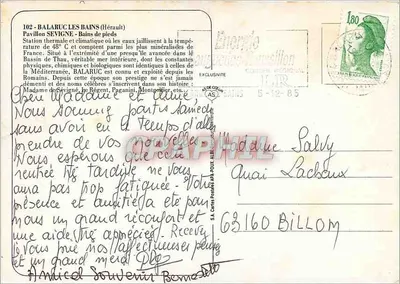 102 - BALARUC LES BAINS (Hérault)
Pavillon SEVIGNE - Bains de pieds
Station thermale et climatique où les eaux jaillissent à la température
de 48° C et comptent parmi les plus minéralisées de
France. Situé à l'extrémité d'une presqu'île avancée dans le
Bassin de Thau, véritable mer intérieure, dont les constantes
physiques, chimiques et biologiques sont identiques à celles de
la Méditerranée, BALARUC est connu et exploité depuis les
Romains. Depuis cette époque son prestige ne s'est pas démenti
et des curistes illustres y ont séjourné
Madame de Sévigné, le Régent, Paganini, Montgolfier, etc...
1,80
Energie
5-12-85
EXCLUSIVITÉ
S.A. Cartes Postales APA-POUX, ALBI
Chère Madame et amie
Nous sommes partis samedi
sans avoir eu le temps d'aller
prendre de vos nouvelles
Nous espérons que cette
rentrée tardive ne vous
aura pas trop fatiguée - Votre
présence et amitié a été pour
nous un grand réconfort et
une aide très appréciée. Recevez
je vous prie nos affectueuses pensées
et un grand merci
Amical Souvenir
Madame Salvy
Quai Lacheux
63160 BILLOM
CPAPHIL